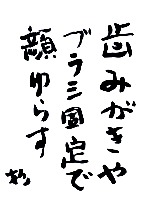 歯みがきや
ブラシ固定で
顔ゆらす